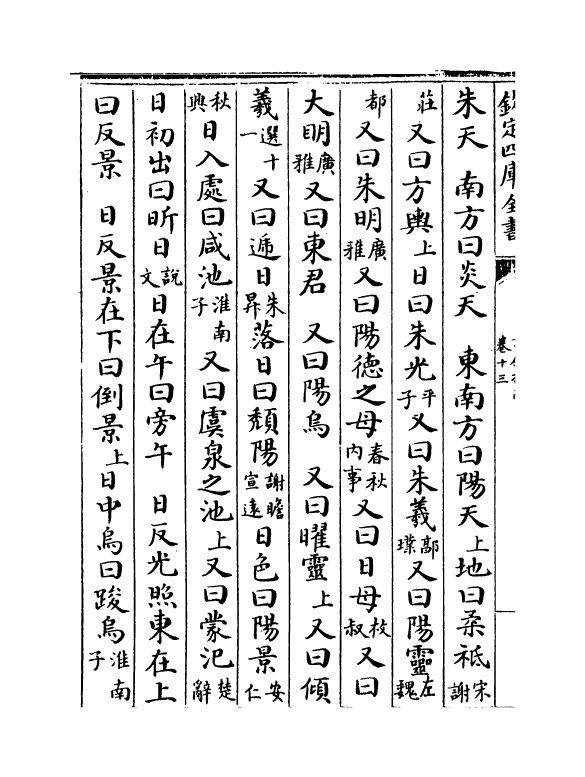 欽定四庫全書
卷十三
朱天　南方曰炎天　東南方曰陽天上地曰柔祗宋謝
莊又曰方輿上日曰朱光平子又曰朱羲郭璞又曰陽靈左魏
都又曰朱明廣雅又曰陽德之母春秋内事又曰日母枚叔又曰
大明廣雅又曰東君　又曰陽烏　又曰曜靈上又曰傾
羲選十一又曰遞日朱昇落日曰頽陽謝瞻宣遠日色曰陽景安仁
秋興日入處曰咸池淮南子又曰虞泉之池上又曰蒙汜楚辭
日初出曰昕日說文日在午曰旁午　日反光照東在上
曰反景　日反景在下曰倒景上日中烏曰踆烏淮南子